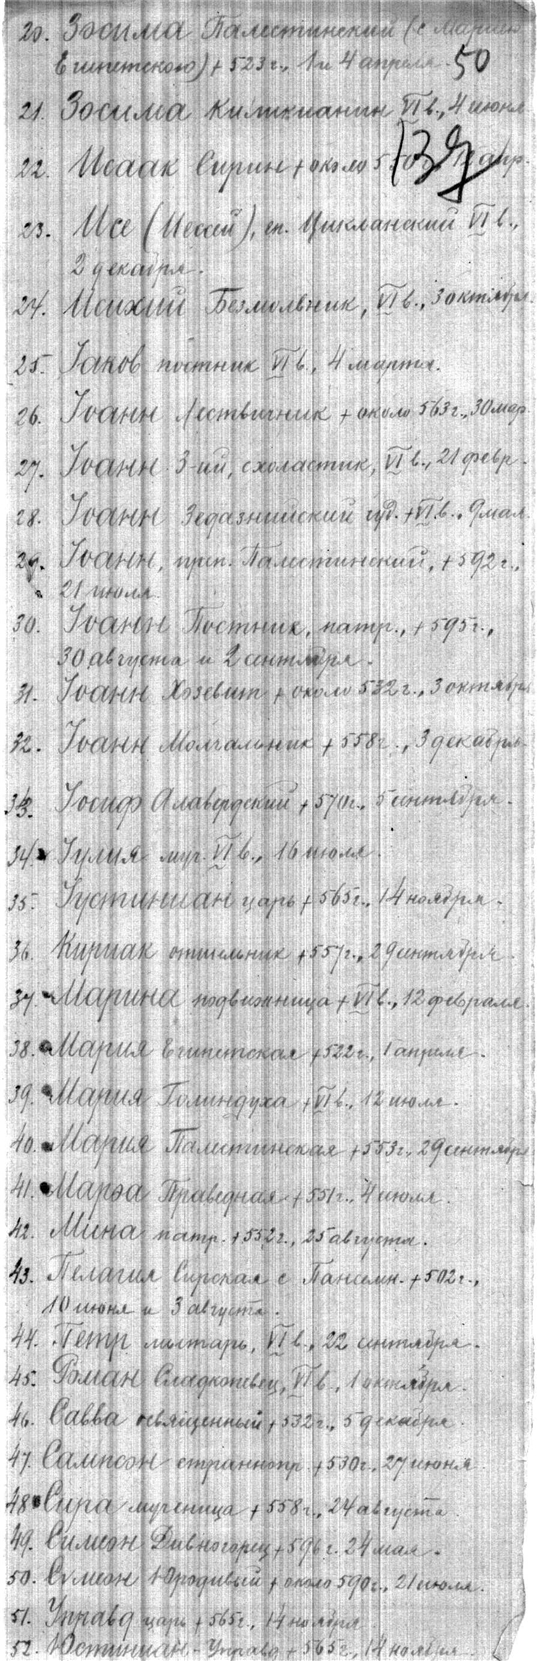 20. Зосима Палестинский (с Марией
Египетскою) + 523 г., 1 и 4 апреля. 50
21. Зосима Киликианин VI в., 4 июня
22. Исаак Сирин + около 5 апр.
23. Исе (Иессей), еп. Цилканский VI в.,
2 декабря.
24. Исихий Безмолвник, VI в., 3 октября.
25. Іаков постник VI в., 4 марта.
26. Іоанн Лествичник + около 563 г., 30 мар.
27. Іоанн 3-ий, схоластик, VI в., 21 февр.
28. Іоанн Зедазнийский + VI в., 9 мая.
29. Іоанн, преп. Палестинский, + 592 г.,
21 июля
30. Іоанн Постник, патр., + 595 г.,
30 августа и 2 сентября.
31. Іоанн Хозевит + около 532 г., 3 октября
32. Іоанн Молчальник + 558 г., 3 декабря.
33. Іосиф Алавердский + 570 г., 5 сентября.
34. Іулия муч. VI в., 16 июля.
35. Іустиниан царь + 565 г., 14 ноября.
36. Кириак отшельник + 557 г., 29 сентября.
37. Марина подвижница + VI в., 12 февраля.
38. Мария Египетская + 522 г., 1 апреля.
39. Мария Голиндуха + VI в., 12 июля.
40. Мария Палестинская + 553 г., 29 сентября
41. Марфа Праведная + 551 г., 4 июля.
42. Мина патр. + 552 г., 25 августа.
43. Пелагия Сирская с + 502 г.,
10 июня и 3 августа.
44. Петр мытарь, VI в., 22 сентября.
45. Роман Сладкопевец, VI в., 1 октября.
46. Савва освященный + 532 г., 5 декабря.
47. Сампсон страннопр. + 530 г., 27 июня.
48. Сира мученица + 558 г., 24 августа.
49. Симеон Дивногорец + 596 г. 24 мая.
50. Симеон Юродивый + около 590 г., 21 июля.
51. Управд царь + 565 г., 14 ноября.
52. Юстиниан-Управд + 565 г., 14 ноября.